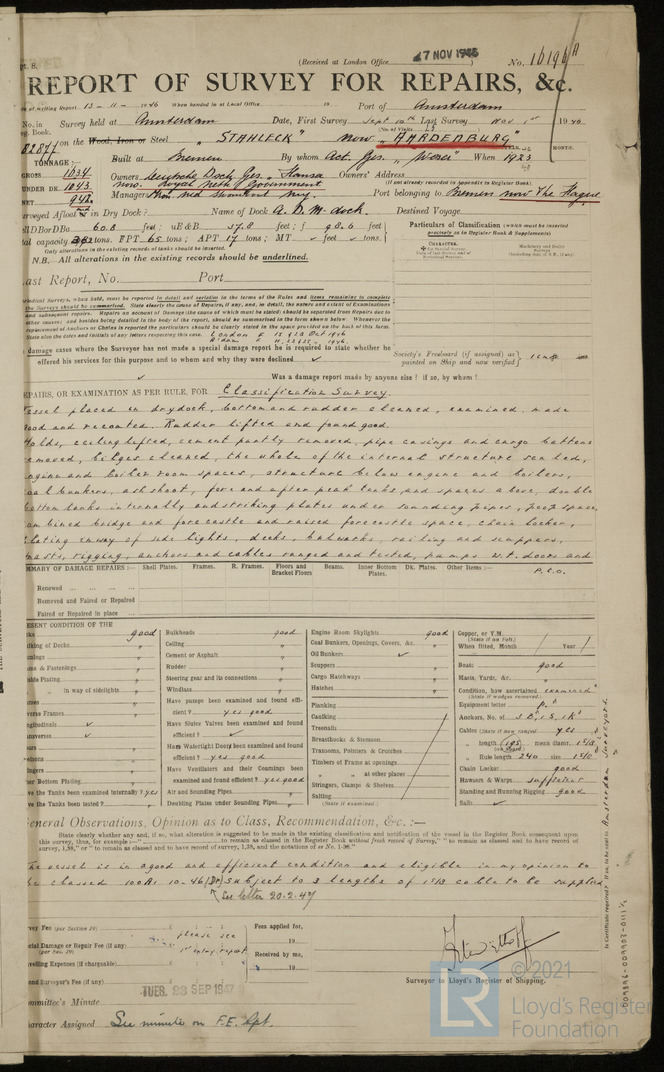 pt. 8.
(Received at London Office 27 NOV 1946 ) No. 16196A
REPORT OF SURVEY FOR REPAIRS, &c.
of writing Report 13 - 11 - 1946 When handed in at Local Office 19 Port of Amsterdam
No. in Survey held at Amsterdam Date, First Survey Sept 10th Last Survey Nov 1st 1946
g. Book. (No. of Visits 23
82877 on the Wood, Iron or Steel "STAHLECK" now "AARDENBURG"
TONNAGE:— Built at Bremen By whom Act. Ges. "Weser" When 1923 MONTH.
GROSS 1634 Owners Deutsche Dock. Ges. "Hansa Owners' Address
UNDER DK. 1043 now. Royal Neth. Government (If not already recorded in Appendix to Register Book)
NET 948 Managers Port belonging to Bremen now The Hague
urveyed Afloat or in Dry Dock? Name of Dock A. D. M. dock. Destined Voyage
ll D Bor D Ba 60.8 feet; uE&B 57.8 feet; f 98.6 feet
al capacity 262 tons. FPT 65 tons; APT 17 tons; MT feet tons.
Only alterations in the existing records of tanks should be inserted.
N.B. All alterations in the existing records should be underlined.
Particulars of Classification (which should be inserted precisely as in Register Book & Supplements)
CHARACTER.
ast Report, No. Port
eriodical Surveys, when held, must be reported in detail and seriatim in the terms of the Rules and items remaining to complete
the Surveys should be summarised. State clearly the cause of Repairs, if any, and, in detail, the nature and extent of Examinations
and subsequent repairs. Repairs on account of Damage (the cause of which must be stated) should be separated from Repairs due to
other causes; and besides being detailed in the body of the report, should be summarised in the form shewn below. Whenever the
replacement of Anchors or Chains is reported the particulars should be clearly stated in the space provided on the back of this form.
State also the dates and initials of any letters respecting this case. London
damage cases where the Surveyor has not made a special damage report he is required to state whether he
offered his services for this purpose and to whom and why they were declined
Society's Freeboard (if assigned) as painted on Ship and now verified
Was a damage report made by anyone else? if so, by whom?
EPAIRS, OR EXAMINATION AS PER RULE, FOR Classification Survey.
essel placed in drydock, bottom and rudder cleaned, examined, made
ood and recoated. Rudder lifted and found good.
olds, ceiling lifted, cement partly removed, pipe casings and cargo battens
emoved, bilges cleaned, the whole of the internal structure scaled,
ngine and boiler room spaces, structure below engine and boilers,
oal bunkers, ash shoot, fore and after peak tanks and spaces above, double
ottom tanks internally and striking plates under sounding pipes, poop space,
ombined bridge and forecastle and raised forecastle space, chain locker,
lating inway of side lights, decks, bulwarks, railing and scuppers,
masts, rigging, anchors and cables ranged and tested, pumps W.T. doors and
P.T.O.
UMMARY OF DAMAGE REPAIRS:— Shell Plates. Frames. R. Frames. Floors and Bracket Floors Beams. Inner Bottom Plates. Dk. Plates. Other Items:—
Renewed
Removed and Faired or Repaired
Faired or Repaired in place
ESENT CONDITION OF THE
ks good
lking of Decks "
mings "
ms & Fastenings "
ide Plating "
" in way of sidelights "
mes "
verse Frames "
ngitudinals ✓
ansverses ✓
ors "
eelsons "
ingers "
er Bottom Plating "
ve the Tanks been examined internally? yes
ve the Tanks been tested? "
Bulkheads good
Ceiling "
Cement or Asphalt "
Rudder "
Steering gear and its connections "
Windlass "
Have pumps been examined and found effi-
cient? yes good
Have Sluice Valves been examined and found
efficient? ✓
Have Watertight Doors been examined and found
efficient? yes good
Have Ventilators and their Coamings been
examined and found efficient? yes good
Air and Sounding Pipes "
Doubling Plates under Sounding Pipes "
Engine Room Skylights good
Coal Bunkers, Openings, Covers, &c. "
Oil Bunkers ✓
Scuppers "
Cargo Hatchways "
Hatches "
Planking
Caulking
Treenails
Breasthooks & Stemson
Transoms, Pointers & Crutches
Timbers of Frame at openings
" " at other places
Stringers, Clamps & Shelves
Salting
(State if examined.)
Copper, or Y.M.
(State if on Felt.)
When fitted, Month Year
Boats good
Masts, Yards, &c. "
Condition, how ascertained examined
(State if wedges removed.)
Equipment letter P.
Anchors, No. of 3 B, 1 S, 1 K
Cables (State if now ranged) yes
" length 195 mean diamr. 1 13/16
" Rule length 240 size 1 13/16
Chain Locker good
Hawsers & Warps sufficient
Standing and Running Rigging good
Sails ✓
General Observations, Opinion as to Class, Recommendation, &c. :—
State clearly whether any and, if so, what alteration is suggested to be made in the existing classification and notification of the vessel in the Register Book consequent upon
this survey, thus, for example :—" to remain as classed in the Register Book without fresh record of Survey," " to remain as classed and to have record of
survey, 1,38," or " to remain as classed and to have record of survey, 1,38, and the notations of ss No. 1,38."
The vessel is in a good and efficient condition and eligible in my opinion to
be classed 100A1 10.46 (Dr) subject to 3 lengths of 1 13/16 cable to be supplied
See letter 20.2.47
rvey Fee (per Section 29)
ecial Damage or Repair Fee (if any) (per Sec. 29)
please see
1st entry report
velling Expenses (if chargeable)
ond Surveyor's Fee (if any)
Fees applied for,
19
Received by me,
19
Surveyor to Lloyd's Register of Shipping.
ommittee's Minute TUES. 23 SEP 1947
haracter Assigned See minute on F.E. Rpt.
Amsterdam Surveyors.
Is Certificate required? If so, to be sent to
009896-009902-0111 1/2
© 2021
LR
Lloyd's Register
Foundation